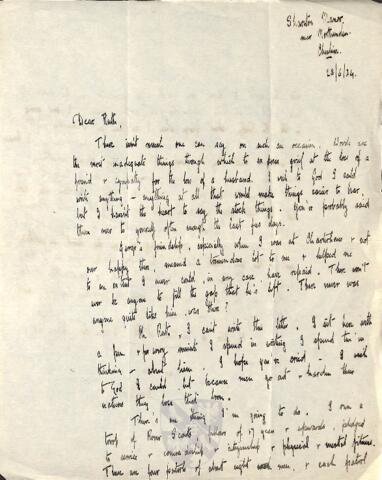 Manor,
near Northenden
Cheshire.
28/6/24.
Dear Ruth,
There isn't much one can say on such an occasion. Words are
the most inadequate things through which to express grief at the loss of a
friend & sympathy for the loss of a husband. I wish to God I could
write anything - anything at all that would make things easier to bear,
but I haven't the heart to say the stock things. You've probably said
them over to yourself often enough the last few days.
George's friendship, especially when I was at Charterhouse & not
over happy there, meant a tremendous lot to me & helped me
to an extent I never could, in any case have repaid. There won't
ever be anyone to fill the gap that he's left. There never was
anyone quite like him, was there?
Oh Ruth, I can't write this letter. I sit here with
a pen & for every minute I spend in writing I spend ten in
thinking - about him. I hope you've cried - I wish
to God I could but because men go out & harden their
natures they lose that boon.
There's one thing I'm going to do. I run a
troop of Rover Scouts of 17 years & upwards, pledged
to service & comradeship & citizenship & physical & mental fitness.
There are four patrols of about eight men, & each patrol